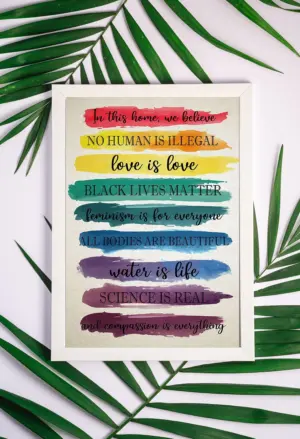 In this home, we believe
NO HUMAN IS ILLEGAL
love is love
BLACK LIVES MATTER
feminism is for everyone
ALL BODIES ARE BEAUTIFUL
water is life
SCIENCE IS REAL
and compassion is everything